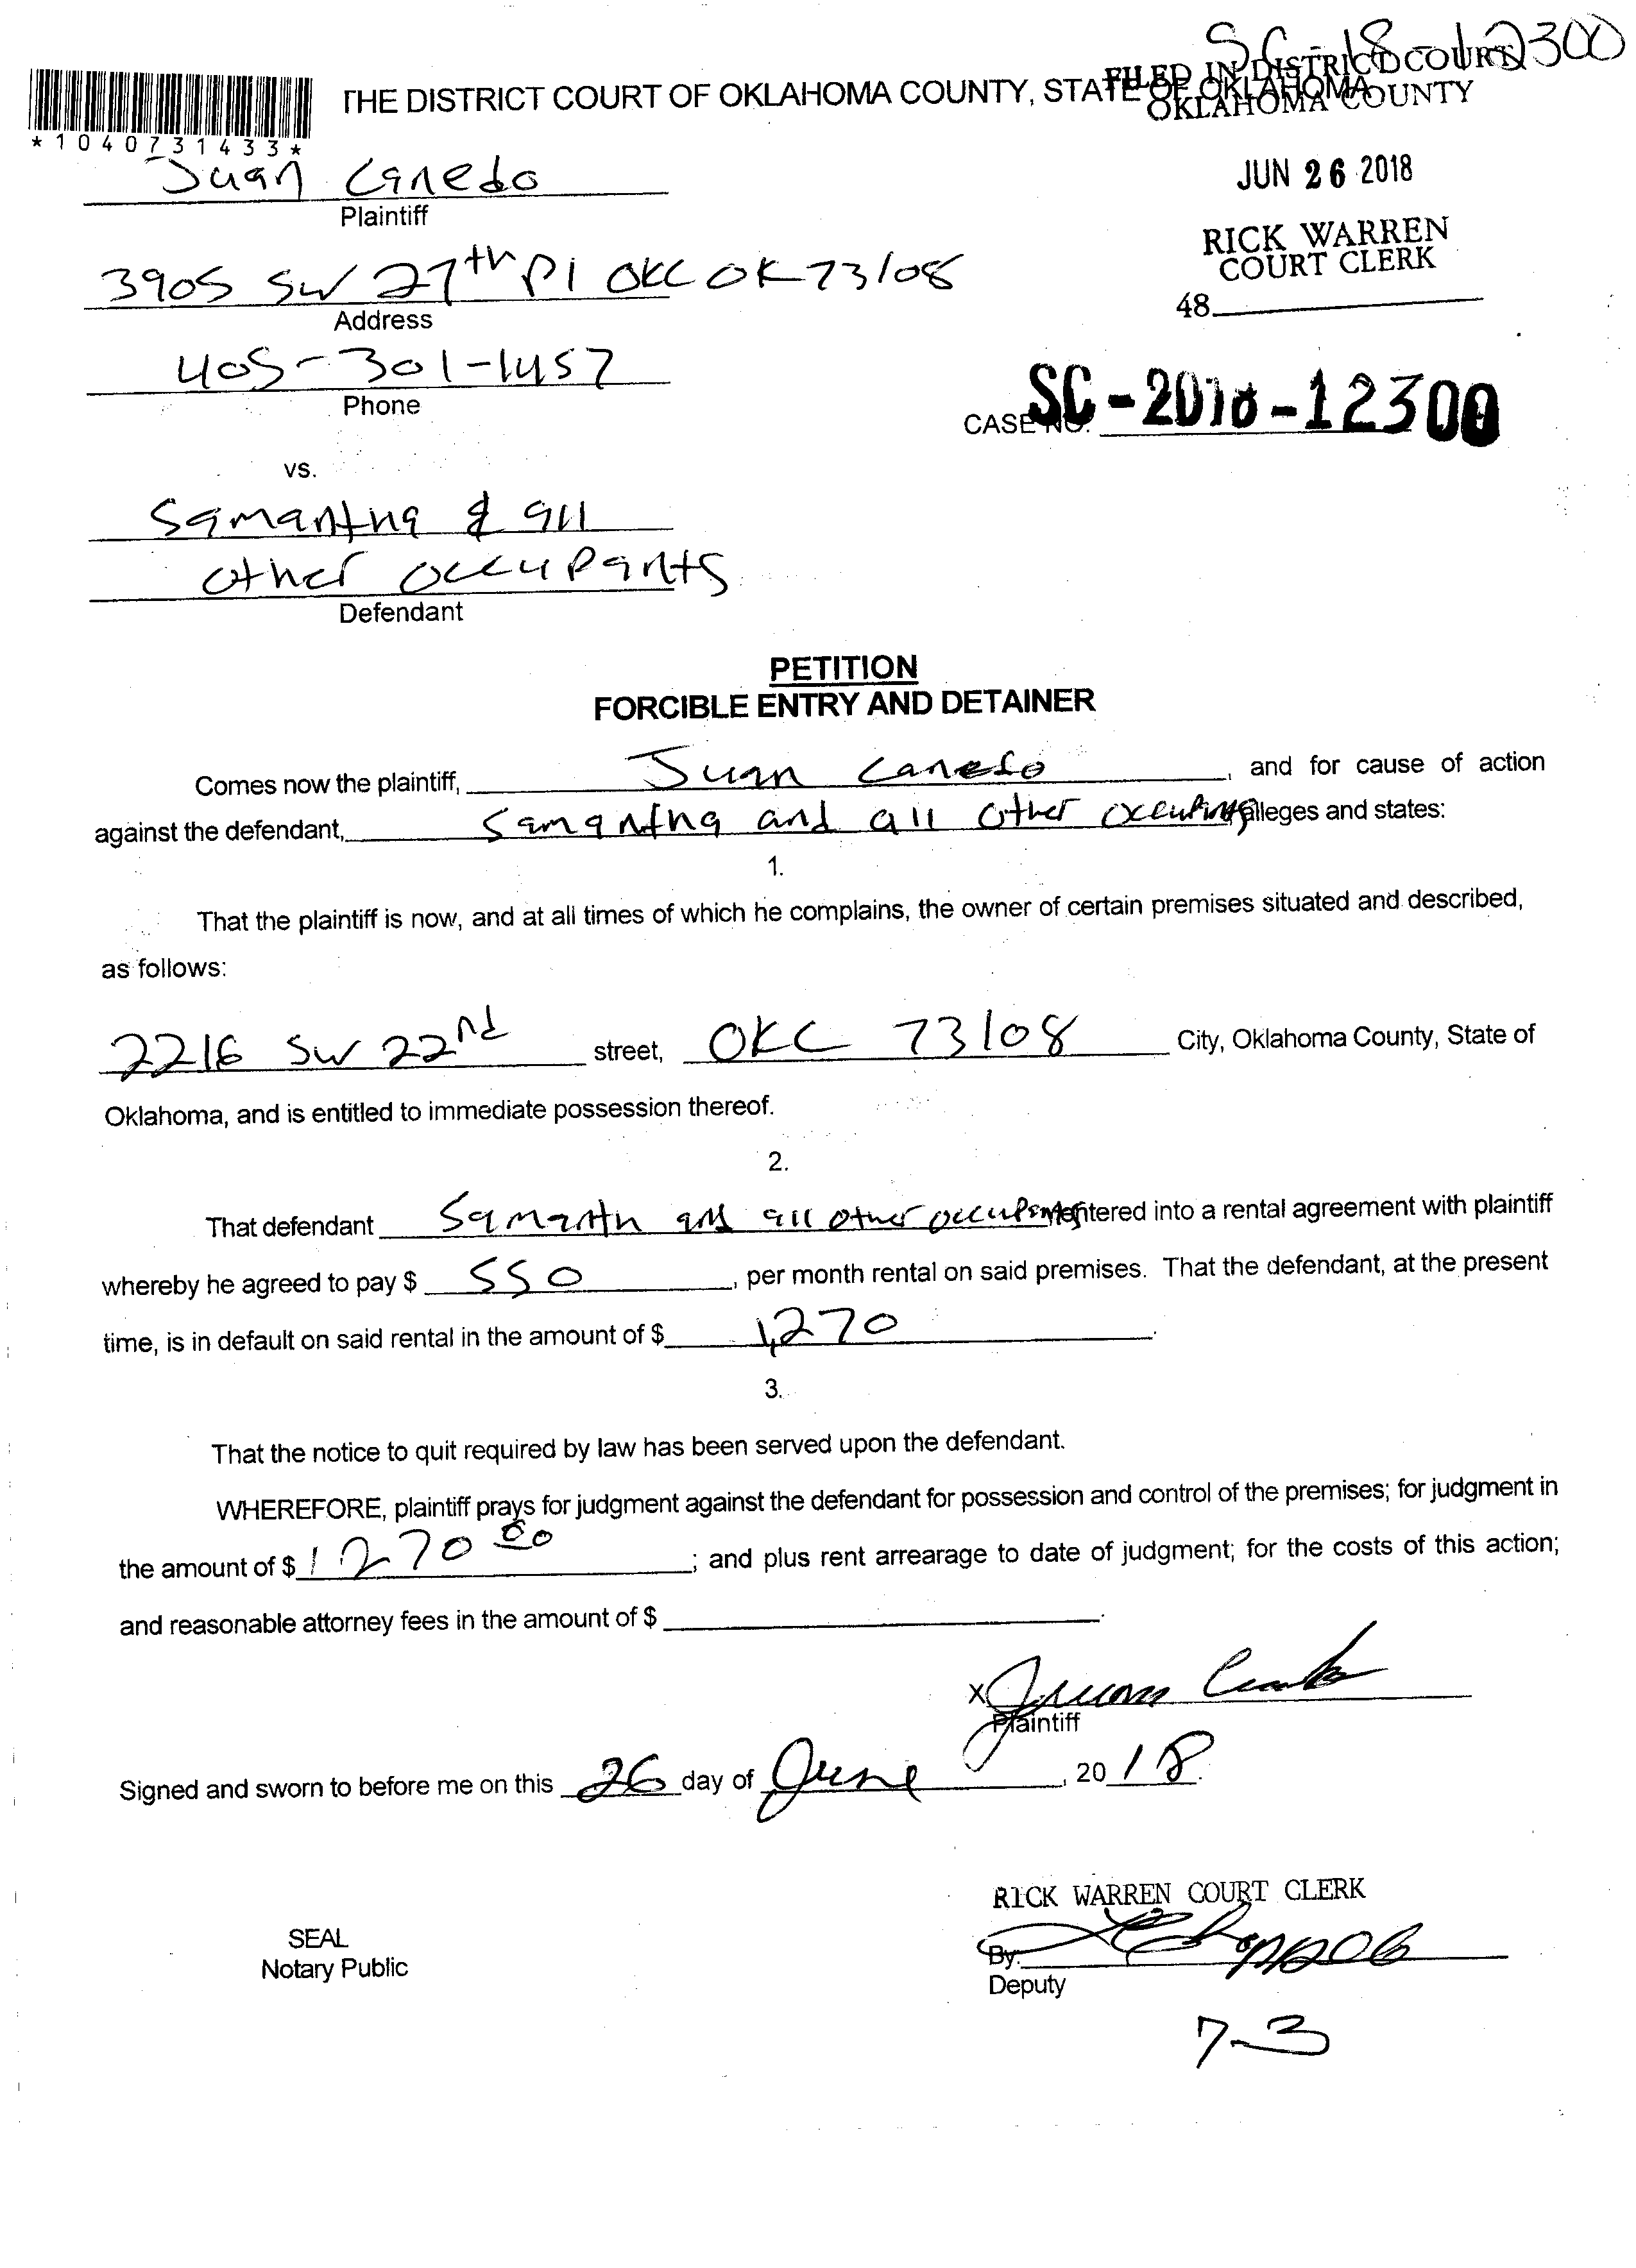 SC-18-12300
THE DISTRICT COURT OF OKLAHOMA COUNTY, STATE OF OKLAHOMA
FILED IN DISTRICT COURT
OKLAHOMA COUNTY
*1040731433*
JUN 26 2018
RICK WARREN
COURT CLERK
48
Juan Canedo
Plaintiff
3905 SW 27th Pl OKC OK 73108
Address
405-301-1457
Phone
CASE NO. SC-2018-12300
vs.
Samantha & all
other occupants
Defendant
PETITION
FORCIBLE ENTRY AND DETAINER
Comes now the plaintiff, Juan Canedo, and for cause of action
against the defendant, Samantha and all other alleges and states:
1.
That the plaintiff is now, and at all times of which he complains, the owner of certain premises situated and described,
as follows:
2216 SW 22nd street, OKC 73108 City, Oklahoma County, State of
Oklahoma, and is entitled to immediate possession thereof.
2.
That defendant Samanth and all other occupants entered into a rental agreement with plaintiff
whereby he agreed to pay $ 550, per month rental on said premises. That the defendant, at the present
time, is in default on said rental in the amount of $ 1,270.
3.
That the notice to quit required by law has been served upon the defendant.
WHEREFORE, plaintiff prays for judgment against the defendant for possession and control of the premises; for judgment in
the amount of $ 1270 00; and plus rent arrearage to date of judgment; for the costs of this action;
and reasonable attorney fees in the amount of $ .
X Juan
Plaintiff
Signed and sworn to before me on this 26 day of June, 2018.
RICK WARREN COURT CLERK
SEAL
Notary Public
By:
Deputy
7-3